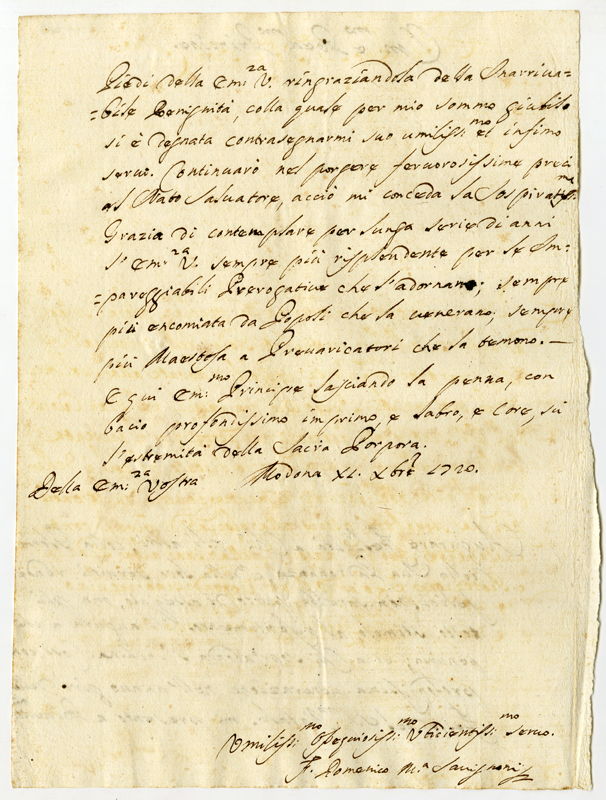 Piedi della Em:za V. ringraziandola della Inarriva=
=bile Benignità, colla quale per mio sommo giubilo
si è degnata contrasegnarmi suo umiliss:mo et infimo
servo. Continuarò nel porgere fervorosissime preci
al Nato Salvatore, acciò mi conceda la Sospiratiss:ma
Grazia di contemplare per lunga serie di anni
l'Em:za V. sempre più risplendente per le Im=
=pareggiabili Prerogative che l'adornano; sempre
più encomiata da Popoli che la venerano; sempre
più Maestosa a Prevaricatori che la temono. —
E qui Em:mo Principe lasciando la penna, con
bacio profondissimo imprimo, e labro, e Core, su
l'estremità della Sacra Porpora.
Della Em:za Vostra Modona XI. Xbre 1720.
Umiliss:mo Osequiosiss:mo Vbidientiss:mo servo.
F. Domenico M.a Savignoni